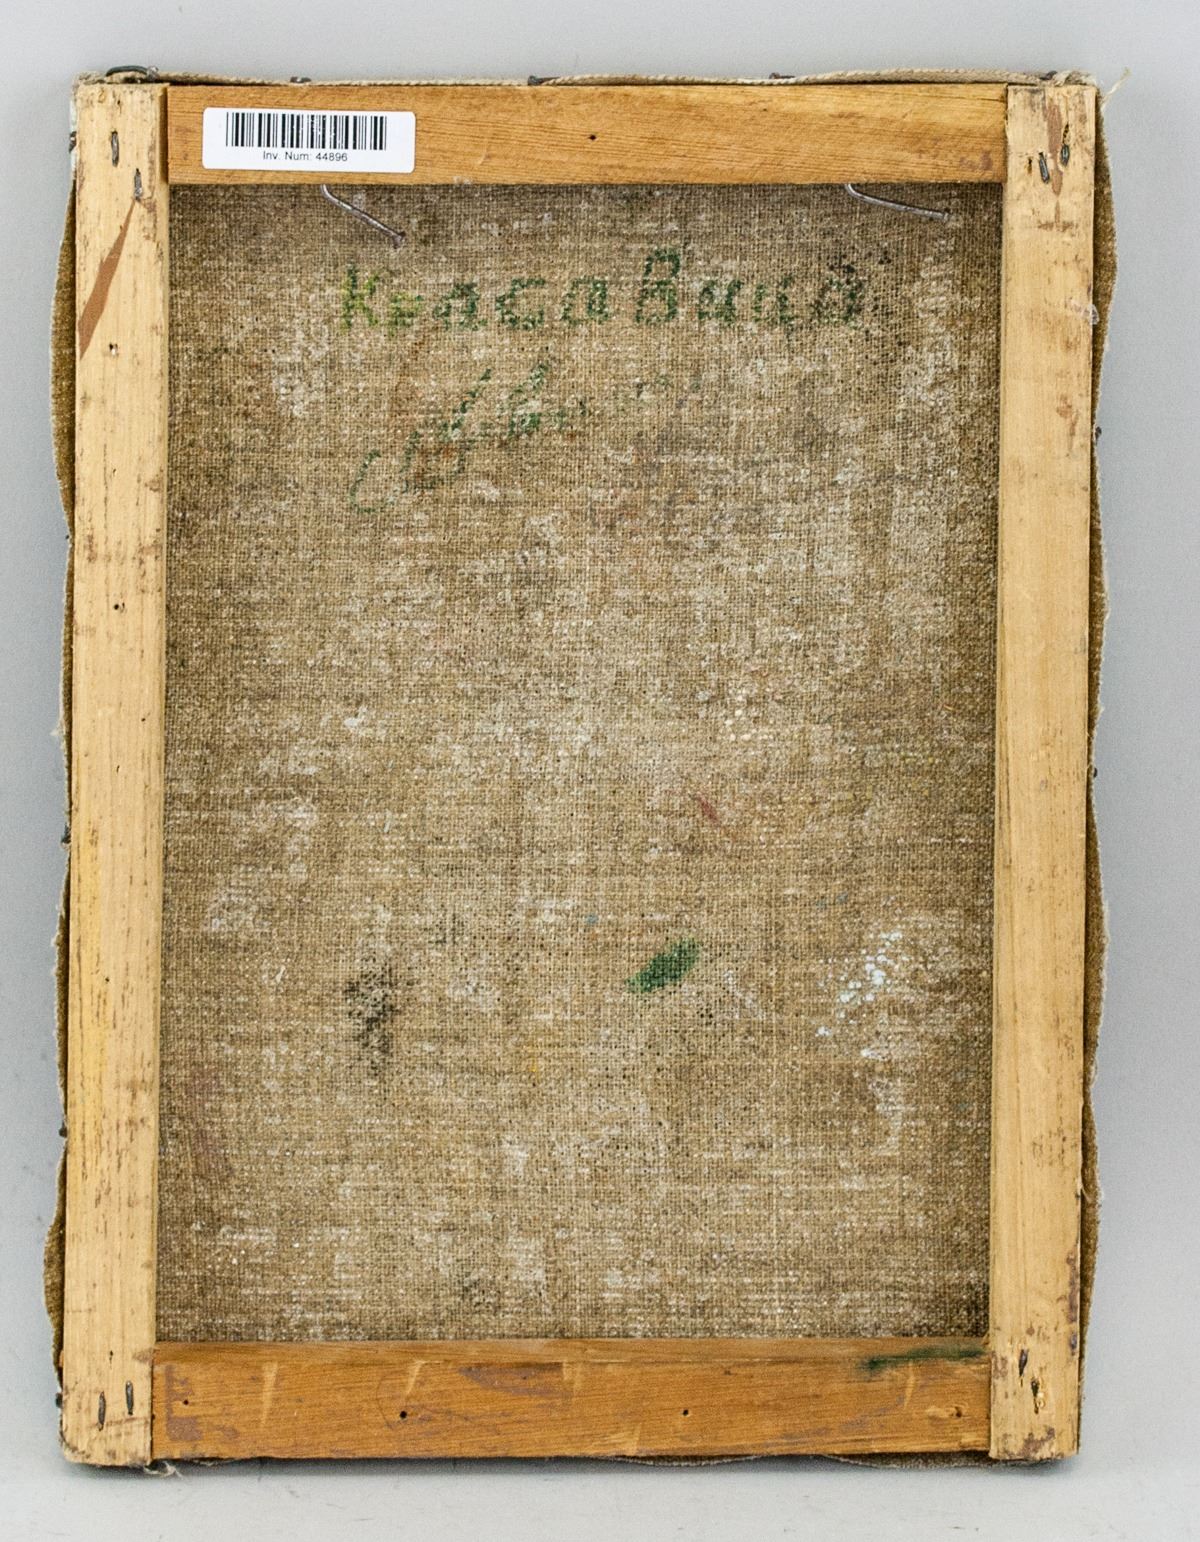 Inv. Num: 44896
КрасаВица